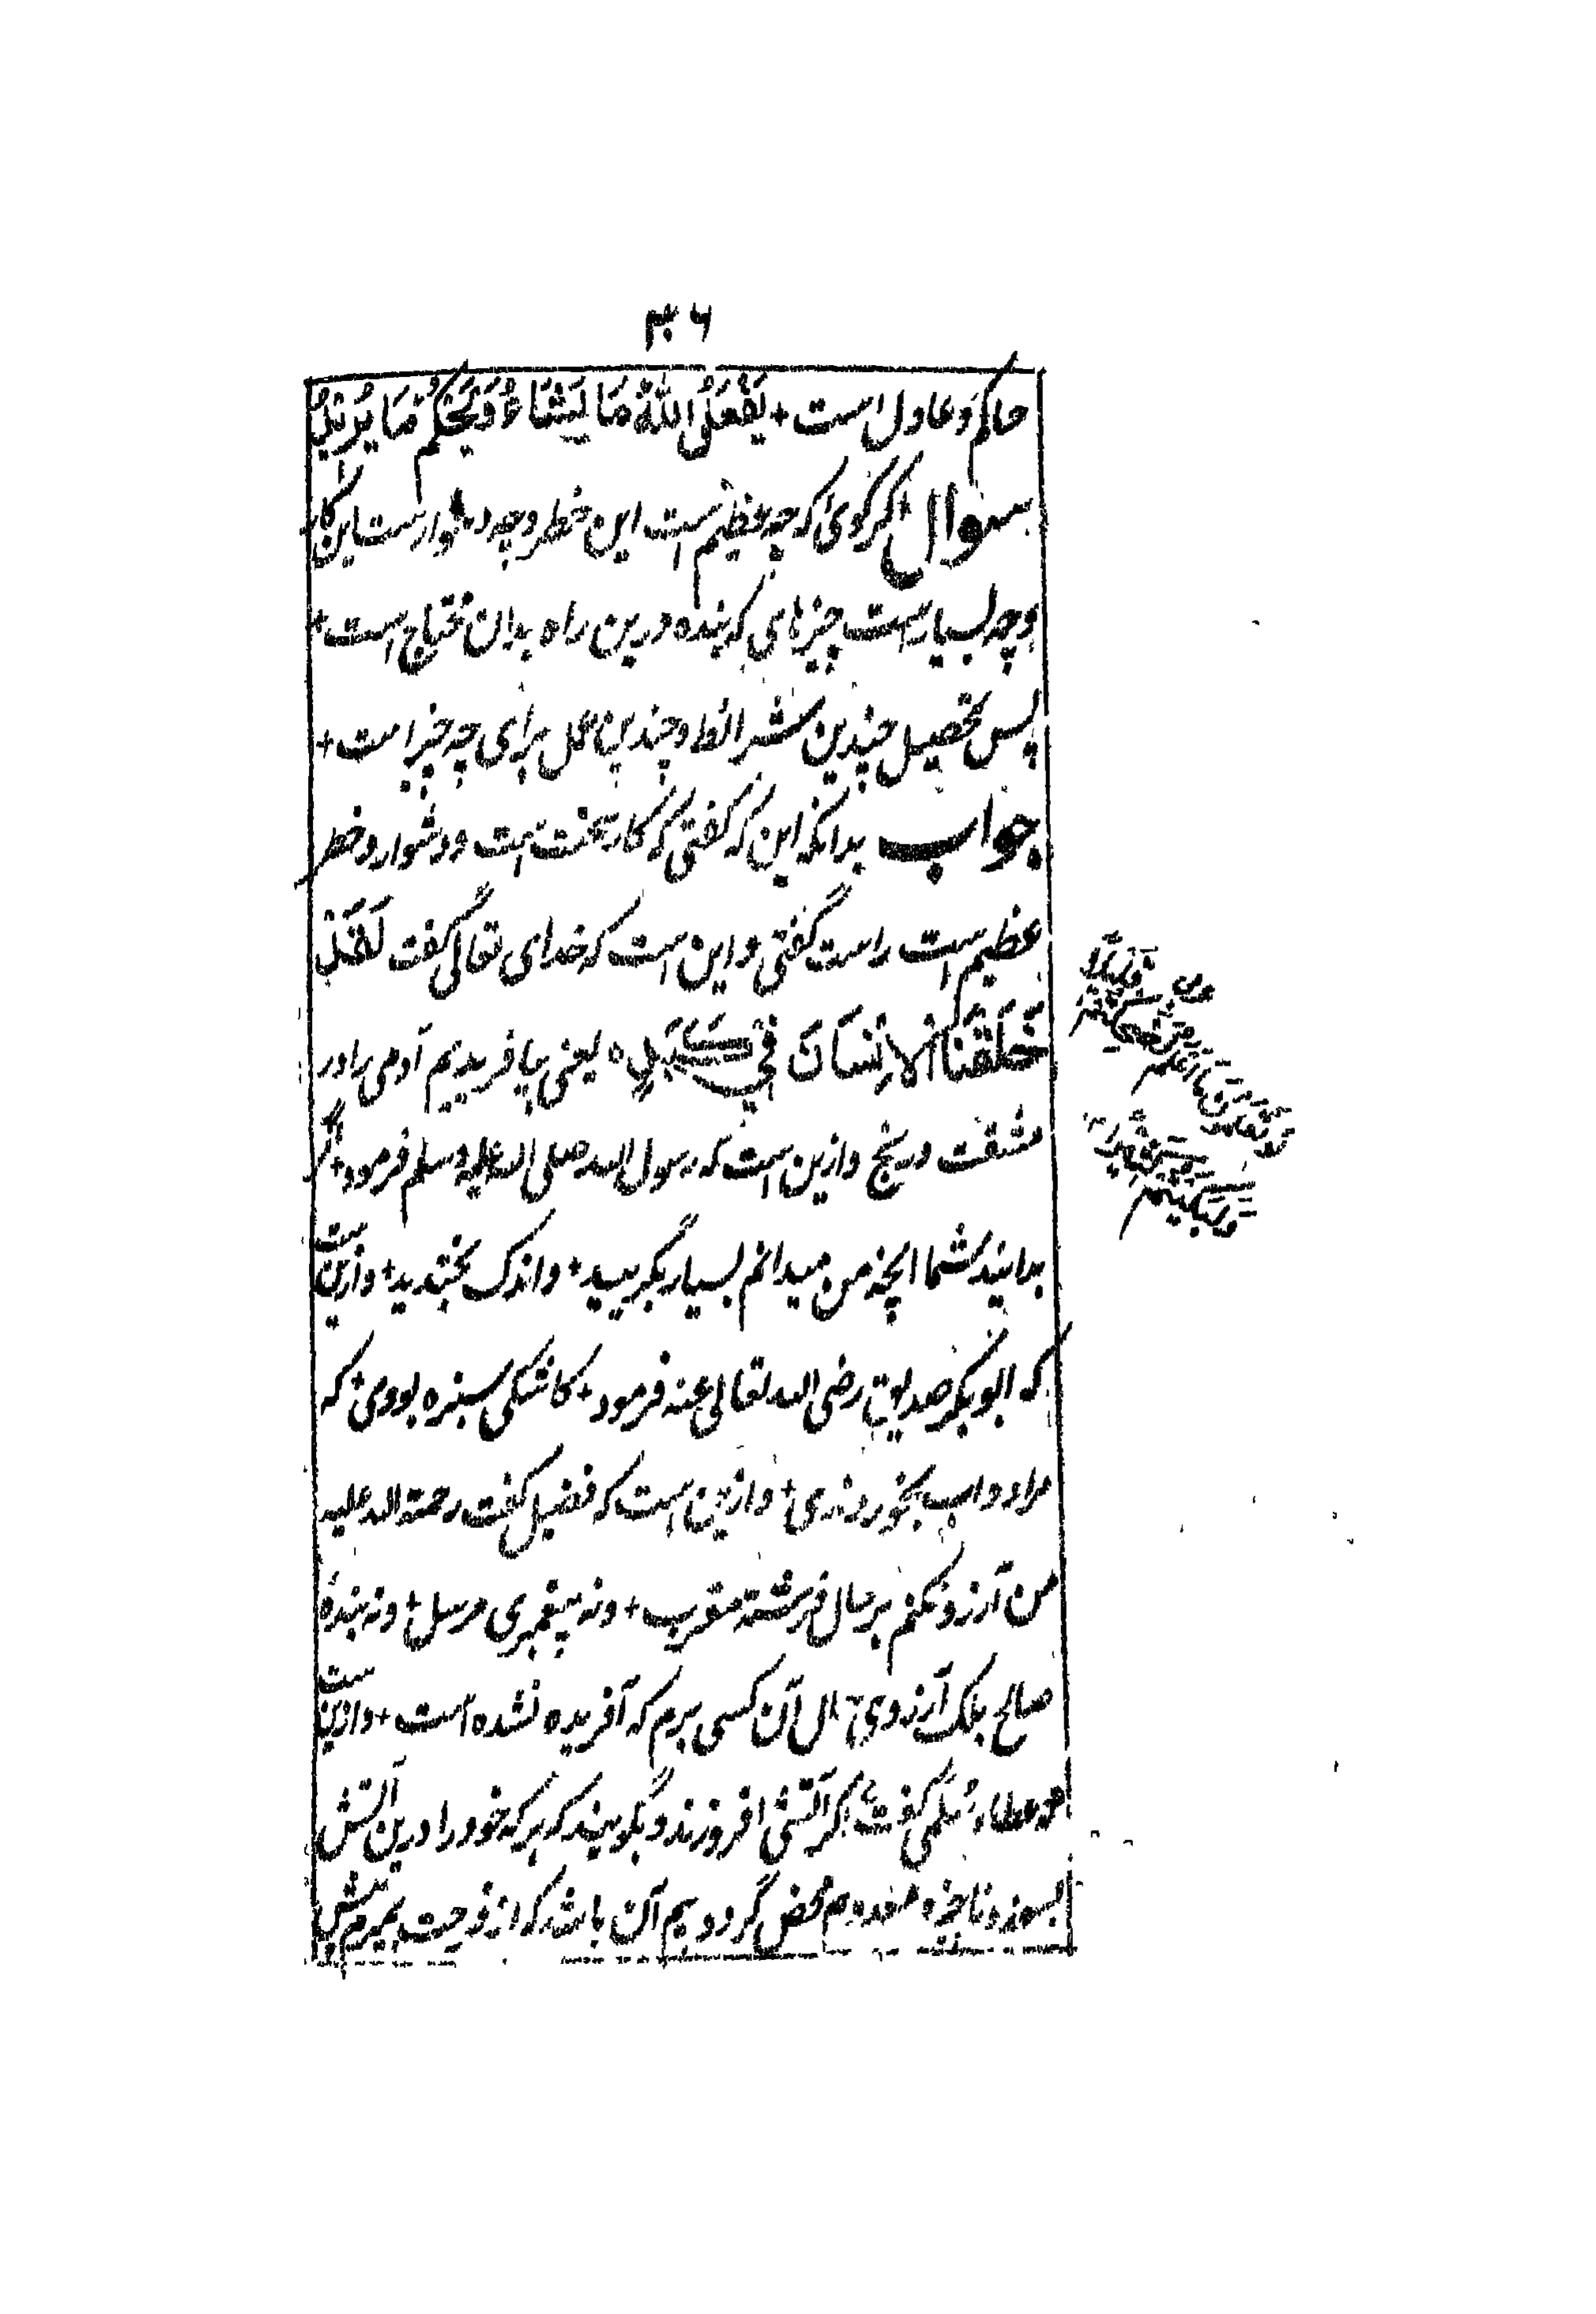 ۳۶
حاکم و عادل است + یَفْعَلُ اللهُ مَا یَشَاءُ وَیَحْکُمُ مَا یُرِیْدُ
سوال اگر گوی که چه عظیم است این خطر و چه دشوار است این کار
و چه بسیار است چیزهای که بنده درین راه بدان محتاج است +
پس تحصیل چندین شرائط و چندین عمل برای چه چیز است +
جواب بدانکه این که گفتی که کار سخت است و دشوار و خطر
عظیم است راست گفتی و این است که خدای تعالی گفت لَقَدْ
خَلَقْنَا الْاِنْسَانَ فِیْ کَبَدٍ ه یعنی بیافریدیم آدمی را در
مشقت و رنج و ازین است که رسول الله صلی الله علیه وسلم فرمود + اگر
بدانید شما انچه من میدانم بسیار بگریید + و اندک بخندید + و ازین ست
که ابوبکر صدیق رضی الله تعالی عنه فرمود + کاشکی سبزه بودی + که
مرا دواب بخوردندی + و ازین است که فضیل گفت رحمة الله علیه
من آرزو نکنم بر حال فرشته مقرب + و نه پیغمبری مرسل + و نه بندهٔ
صالح بلک آرزوی حال آن کسی برم که آفریده نشده است + و ازین ست
که عطاء سلمی گفت اگر آتشی افروزند و بگویند که هر که خود را درین آتش
بسوزد و ناچیزه معدوم محض گردد بیم آن باشد که از فرحت بمیرم پیش
لَوْ تَعْلَمُوْنَ مَا اَعْلَمُ